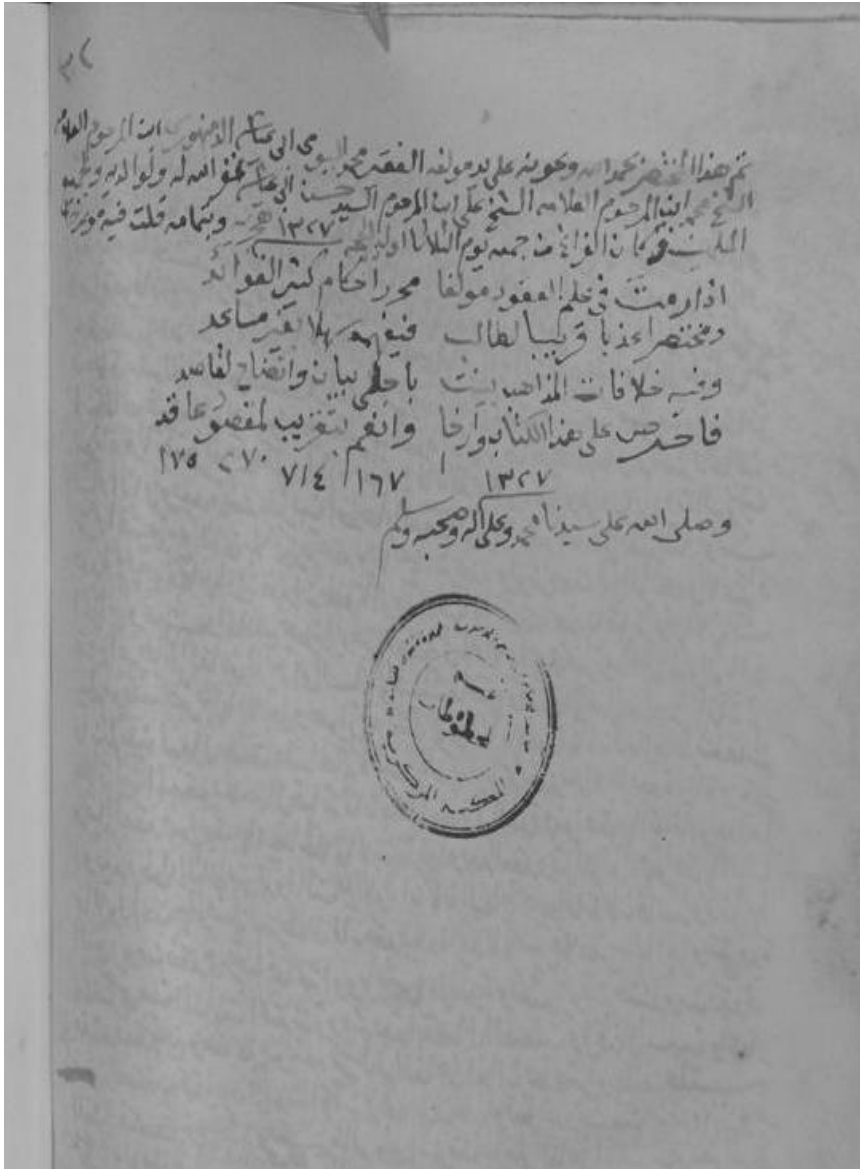 ٣٢
تم هذا المختصر بحمد الله وعونه على يد مؤلفه الفقير محمد البيومي ابي عياشه الدمنهوري ابن المرحوم العلامه
الشيخ محمد ابن المرحوم العلامه الشيخ علي ابن المرحوم السيد حسن ابي عياشه غفر الله له ولوالديه
المسلمين وكان الفراغ من جمعه يوم الثلاثا اول الحجه ١٣٢٧ هجريه وبتمامه قلت فيه مؤرخا
اذا رمت في علم العقود مؤلفا محررا حكام كثير الفوائد
ومختصرا عذبا قريبا لطالب فيفهمه سهلا بغير مساعد
وفيه خلافات المذاهب بينت باجلى بيان واتضاح لقاصد
فاحرص على هذا الكتاب وارخا وانعم بتقريب لمقصود عاقد
١٣٢٧ ١٦٧ ٧١٤ ٢٧٠ ١٧٥
وصلى الله على سيدنا محمد وعلى اله وصحبه وسلم
المكتبة المركزية